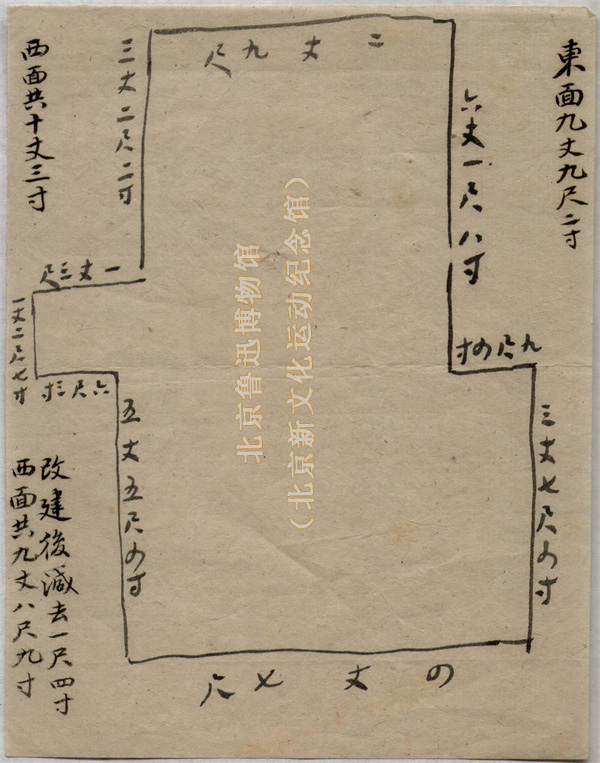 東面九丈九尺二寸
二丈九尺
六丈一尺八寸
九尺四寸
三丈七尺四寸
四丈七尺
西面共十丈三寸
三丈二尺二寸
一丈三尺
一丈二尺七寸
六尺三寸
五丈五尺四寸
改建後減去一尺四寸
西面共九丈八尺九寸
北京鲁迅博物馆
（北京新文化运动纪念馆）